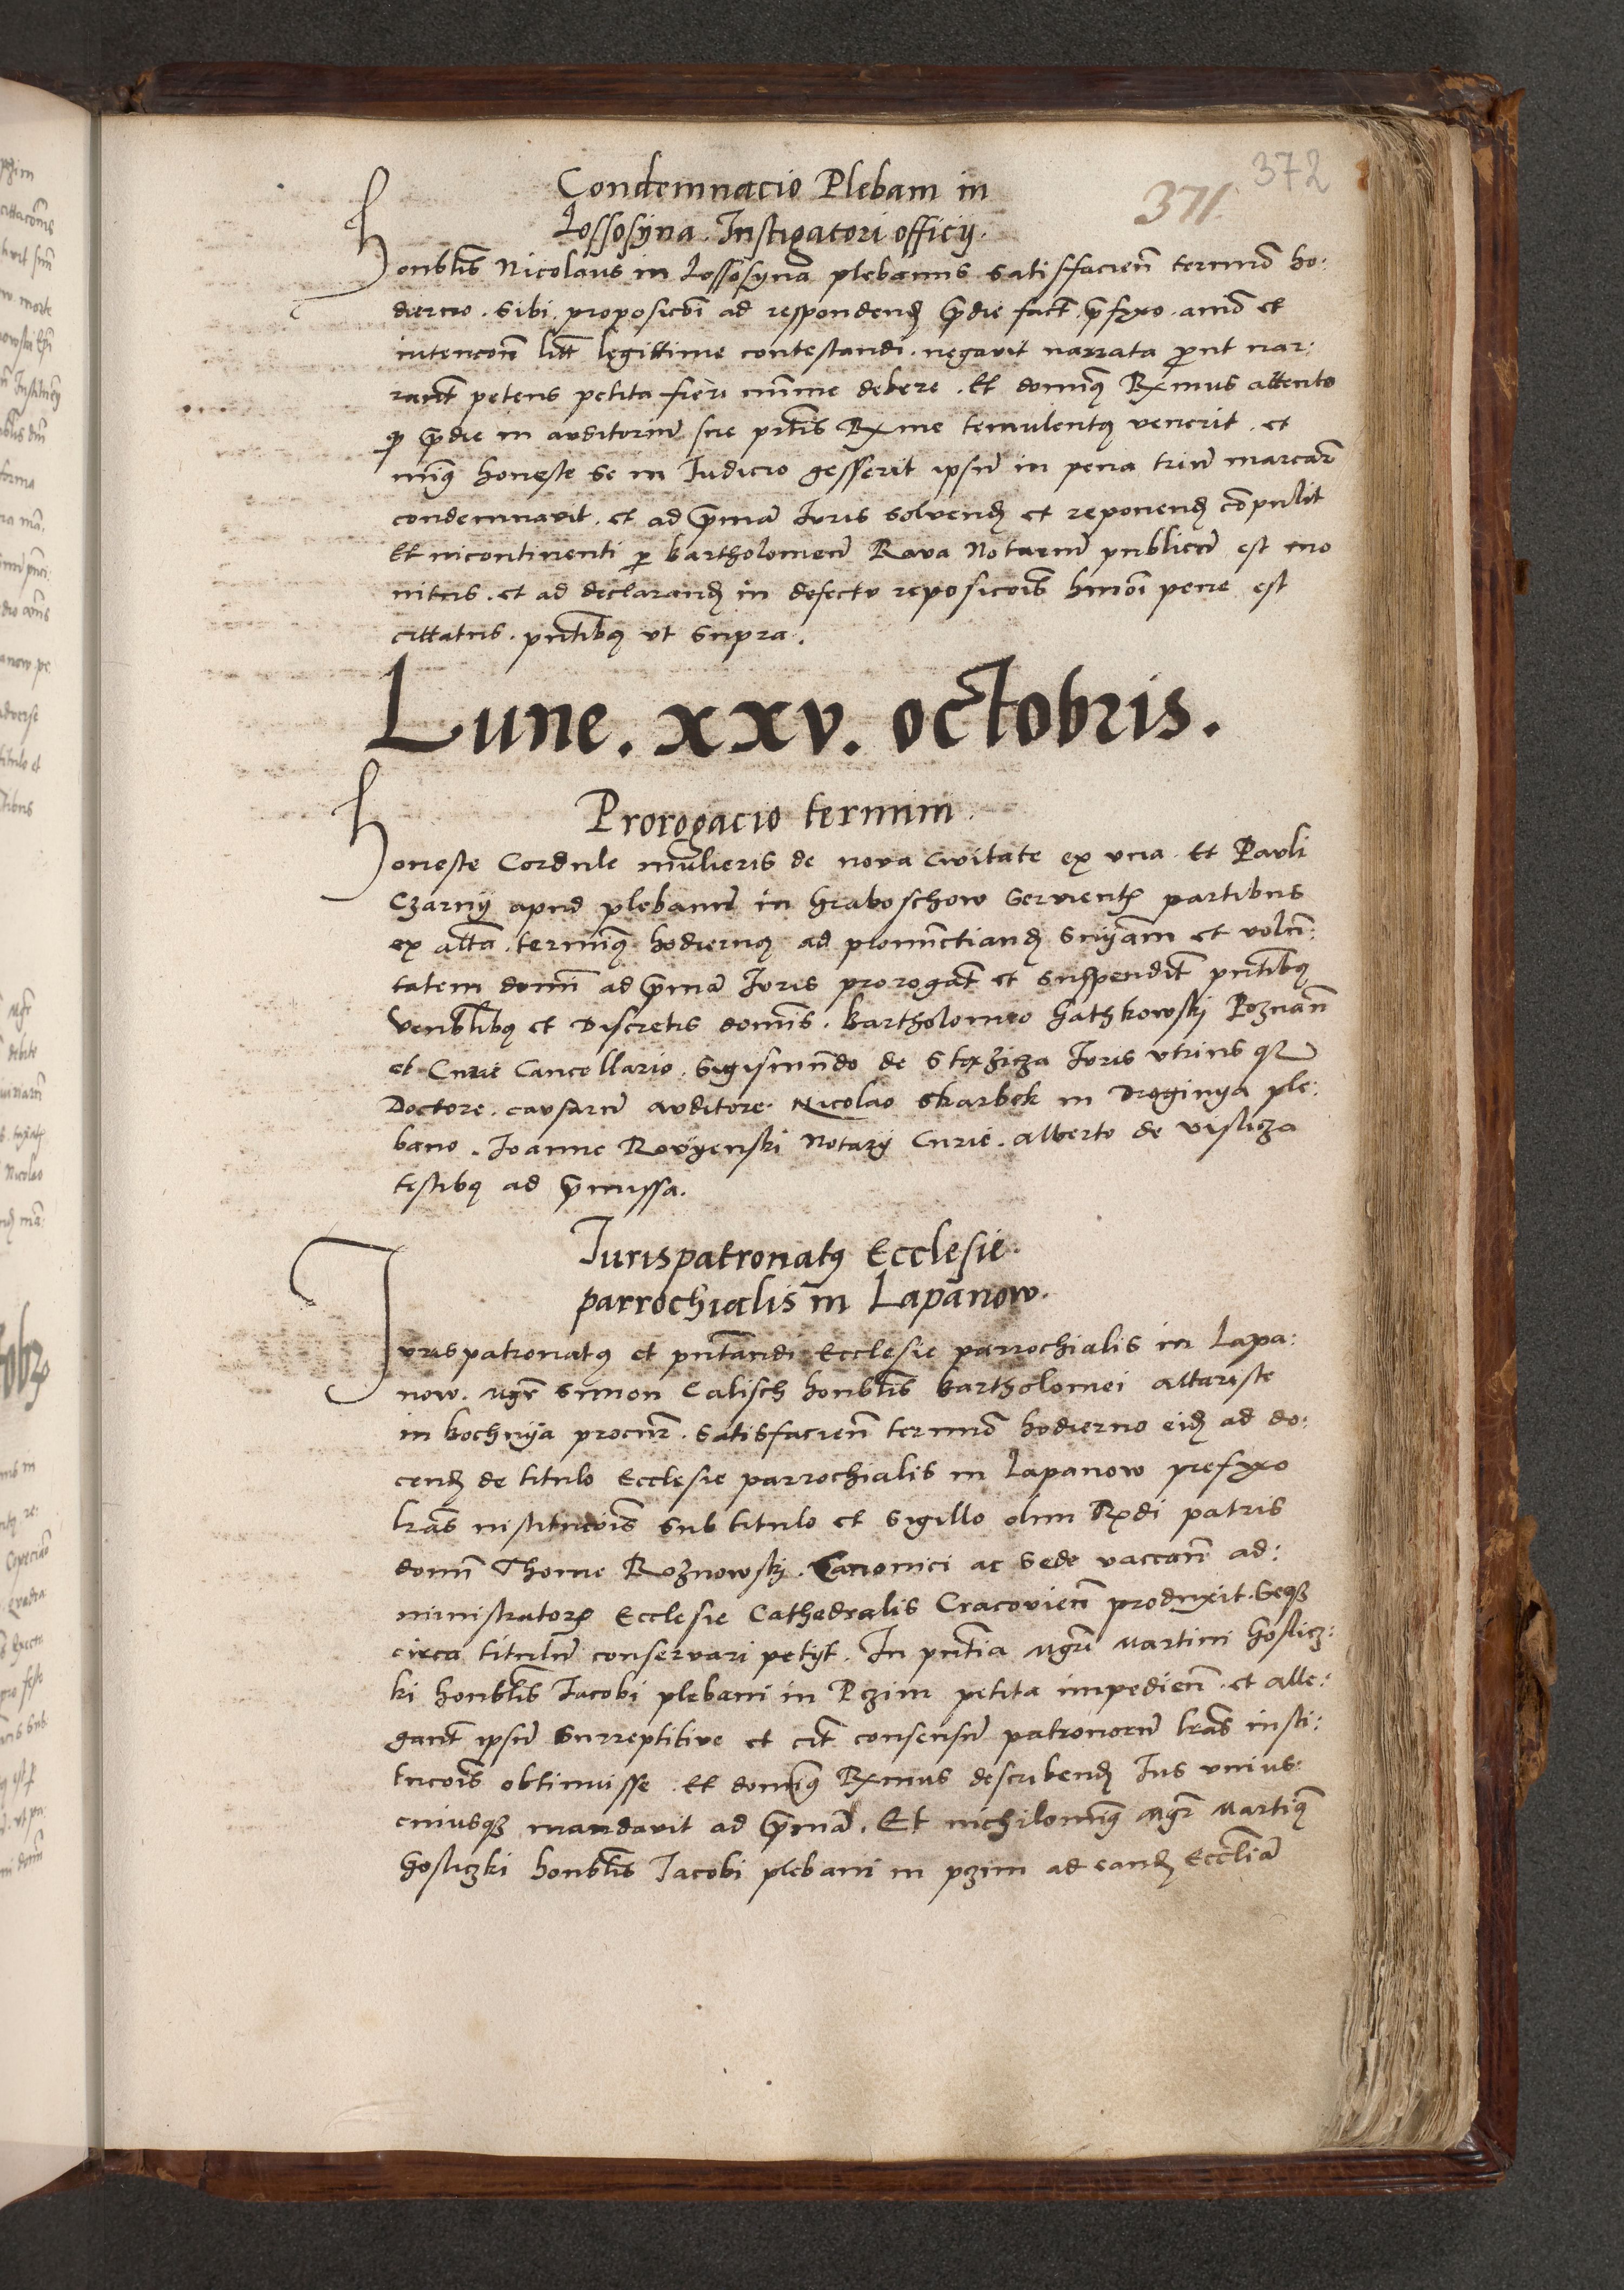 372
371.
Condemnacio Plebani in
Lossosyna. Instigatori officij.
Honblis Nicolaus in Lossosyna plebanus satisfacien termino ho:
dierno. sibi. proposicioni ad respondend pridie fact. prefixo. animo et
intencon litt legittime contestandi. negavit narrata prout nar:
rant petens petita fieri minime debere. Et dominus Rmus attento
quod pridie in auditorium sue pntis Rme temulentus venerit. et
minus honeste se in Iudicio gesserit ipsum in pena trium marcar
condemnavit. et ad primam Iuris solvend et reponend compulit
Et incontinenti per Bartholomeum Rava Notarium publicum est mo
nitus. et ad declarand in defectu reposicionis hmoi pene est
cittatus. pntibus ut supra.
Lune. xxv. octobris.
Prorogacio termini.
Honeste Cordule mulieris de nova Civitate ex una. Et Pauli
Czarny apud plebanum in Hraboschow servientis partibus
ex altera. terminus hodiernus ad pronunctiand sniam et volun:
tatem domini ad primam Iuris prorogat et suspendit pntibus
Venblibus et Discretis dominis. Bartholomeo Gathkowskj Poznan
et Curie Cancellario. Sigismundo de Stezicza Iuris utriusque
Doctore. causarum auditore. Nicolao Skarbek in Droginya ple:
bano. Joanne Rovyenski Notarij Curie. Alberto de Vislicza
testibus ad premissa.
Jurispatronatus Ecclesie.
parrochialis in Lapanow.
Jurispatronatus et pntandi Ecclesie parrochialis in Lapa:
now. Mgr Simon Calisch honblis Bartholomei altariste
in Bochnya procur. satisfacien termino hodierno eid ad do:
cend de titulo Ecclesie parrochialis in Lapanow prefixo
lras institucionis sub titulo et Sigillo olim Rdi patris
domini Thome Roznowskj. Canonici ac Sede vaccan ad:
ministratoris Ecclesie Cathedralis Cracovien produxit. Seque
circa titulum conservari petijt. In pntia Mgri Martini Goslicz:
ki honblis Jacobi plebani in Pczim petita impedien. et alle:
gant ipsum surreptitive et cit consensum patronorum lras insti:
tucois obtinuisse. Et dominus Rmus describend Ius unius:
cuiusque mandavit ad primam. Et nichilominus Mgr Martinus
Gosliczki honblis Jacobi plebani in pczim ad eand Eccliam